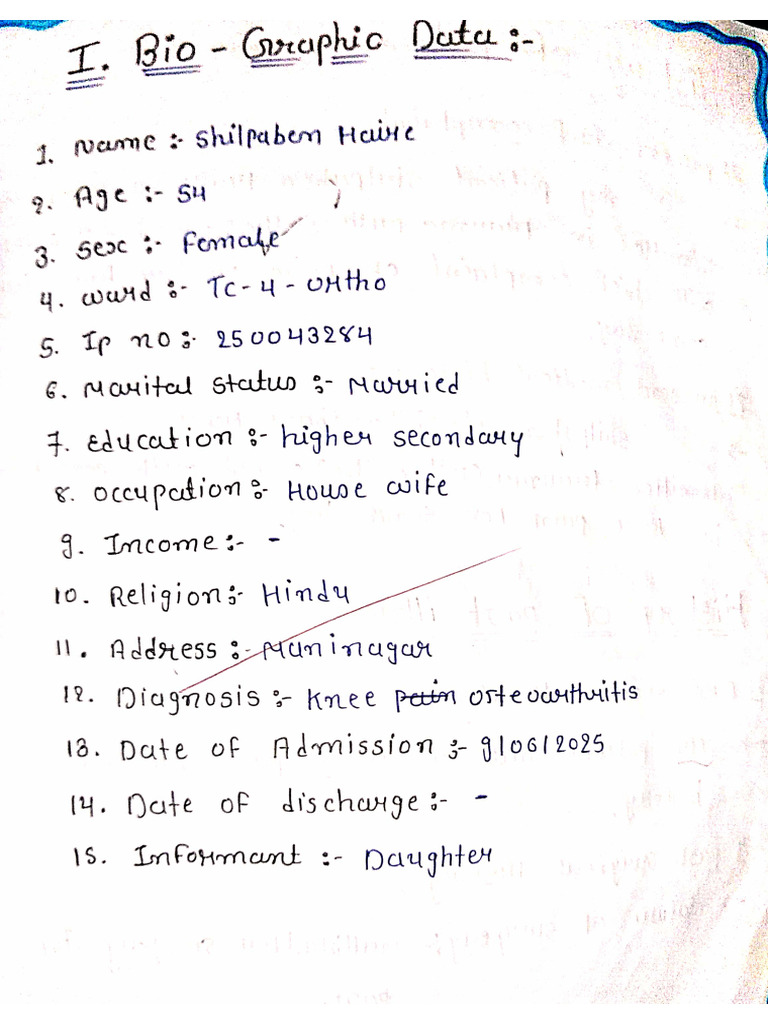 I. Bio - Graphic Data :-
1. Name :- Shilpaben Haire
2. Age :- 54
3. Sex :- Female
4. ward :- TC-4-ortho
5. Ip no :- 250043284
6. Marital status :- Married
7. Education :- higher secondary
8. occupation :- House wife
9. Income :- -
10. Religion :- Hindu
11. Address :- Maninagar
12. Diagnosis :- Knee pain osteoarthritis
13. Date of Admission :- 9/06/2025
14. Date of discharge :- -
15. Informant :- Daughter